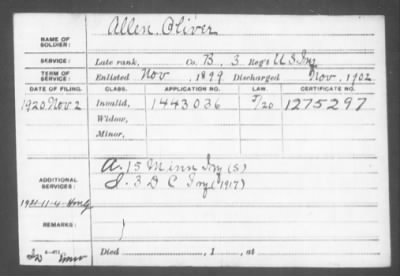 NAME OF SOLDIER: Allen, Oliver
SERVICE: Late rank, Co. B, 3 Reg't U.S. Inf
TERM OF SERVICE: Enlisted Nov, 1899 Discharged Nov, 1902
DATE OF FILING. CLASS. APPLICATION NO. LAW. CERTIFICATE NO.
1920 Nov 2 Invalid, 1443036 1275297
Widow,
Minor,
ADDITIONAL SERVICES: A. 15 Minn Inf (S)
3 D C Inf (1917)
REMARKS:
Died, 1, at